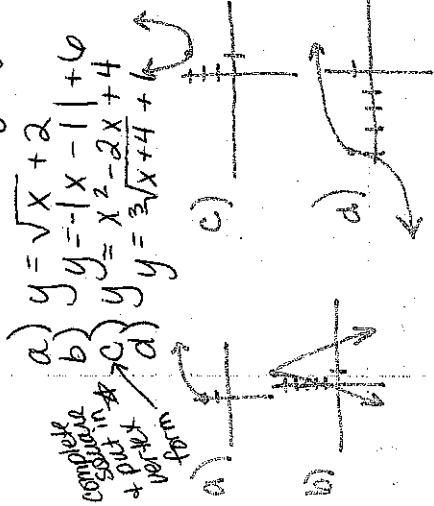 a) y = √x + 2
b) y = -|x - 1| + 6
c) y = x² - 2x + 4
d) y = ³√x+4 + 1
complete
square
+ put in
vertex
form
a)
b)
c)
d)